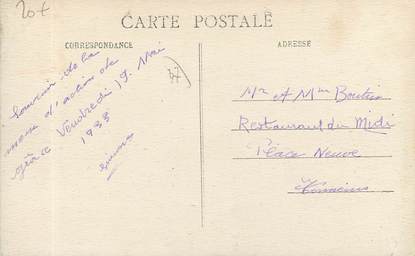 20f
CARTE POSTALE
CORRESPONDANCE
ADRESSE
Souvenir de la
messe d'action de
grâce Vendredi 19 Mai
1933
Mr et Mme Boutin
Restaurant du Midi
Place Neuve